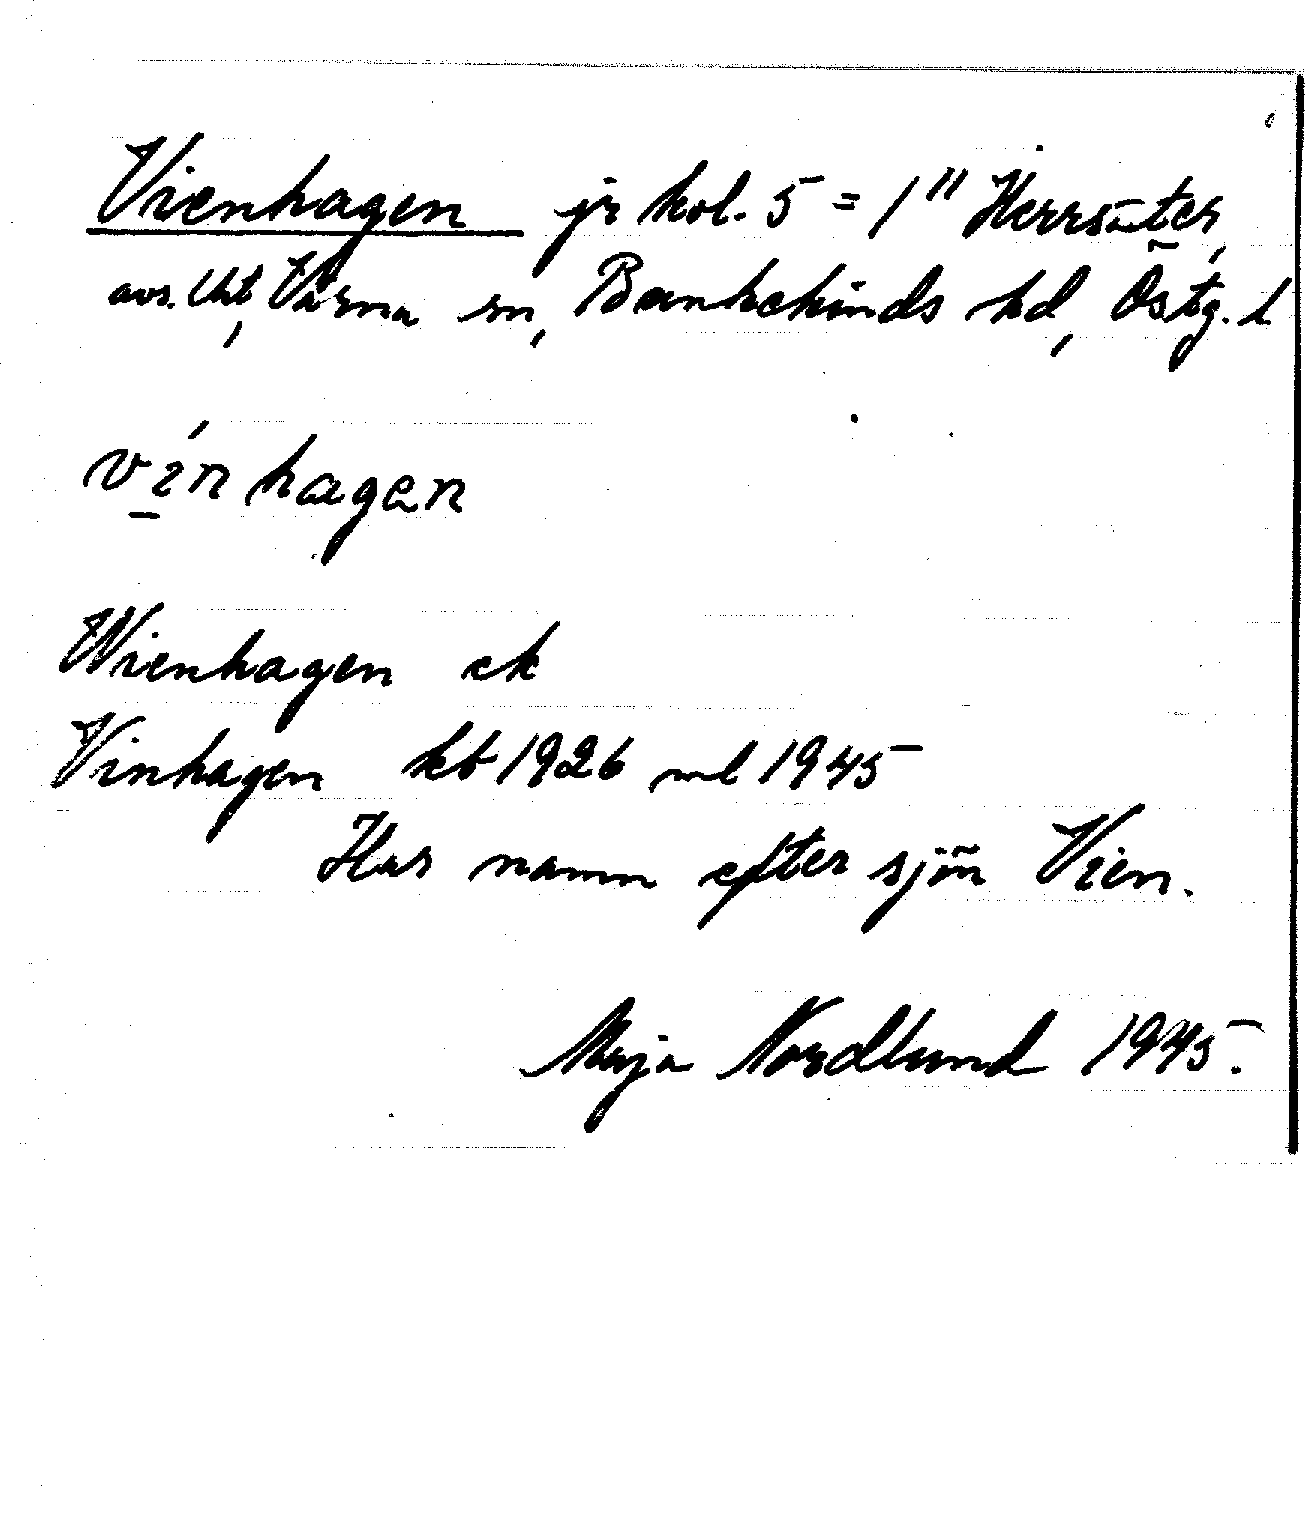 Vienhagen jr kol. 5 = 1" Herrsäter,
avs. Utt, Värna sn, Bankekinds hd, Östg. l
ví̱nhagen
Wienhagen ek
Vinhagen kb 1926 ml 1945
Har namn efter sjön Vien.
Maja Nordlund 1945.